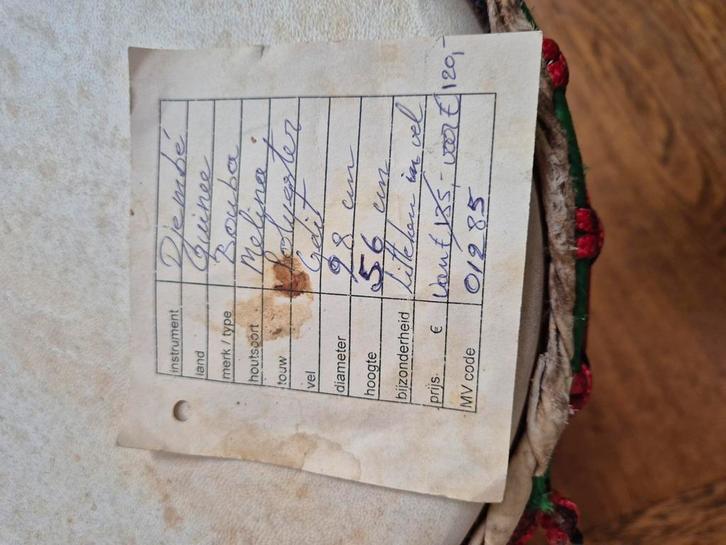 instrument Djembé
land Guinee
merk / type Bouba
houtsoort Melina
touw Polyester
vel Geit
diameter 28 cm
hoogte 56 cm
bijzonderheid litteken in vel
prijs € van € 135,- voor € 120,-
MV code 01285